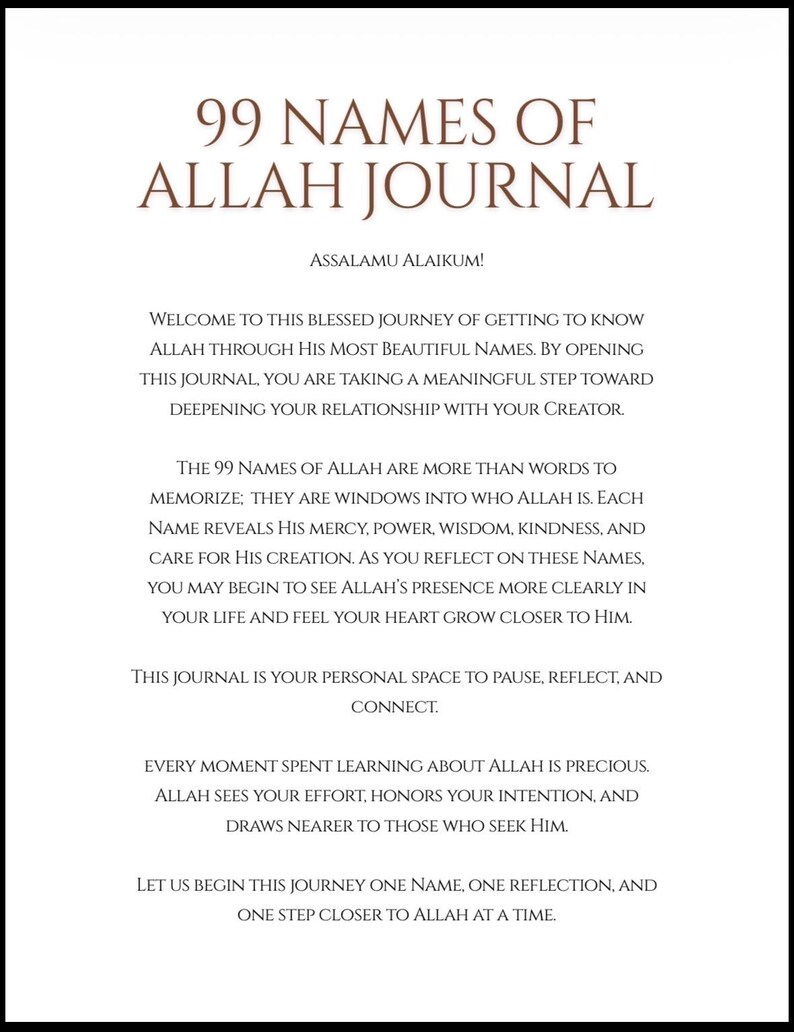 99 NAMES OF
ALLAH JOURNAL
Assalamu Alaikum!
Welcome to this blessed journey of getting to know
Allah through His Most Beautiful Names. By opening
this journal, you are taking a meaningful step toward
deepening your relationship with your Creator.
The 99 Names of Allah are more than words to
memorize; they are windows into who Allah is. Each
Name reveals His mercy, power, wisdom, kindness, and
care for His creation. As you reflect on these Names,
you may begin to see Allah’s presence more clearly in
your life and feel your heart grow closer to Him.
This journal is your personal space to pause, reflect, and
connect.
every moment spent learning about Allah is precious.
Allah sees your effort, honors your intention, and
draws nearer to those who seek Him.
Let us begin this journey one Name, one reflection, and
one step closer to Allah at a time.